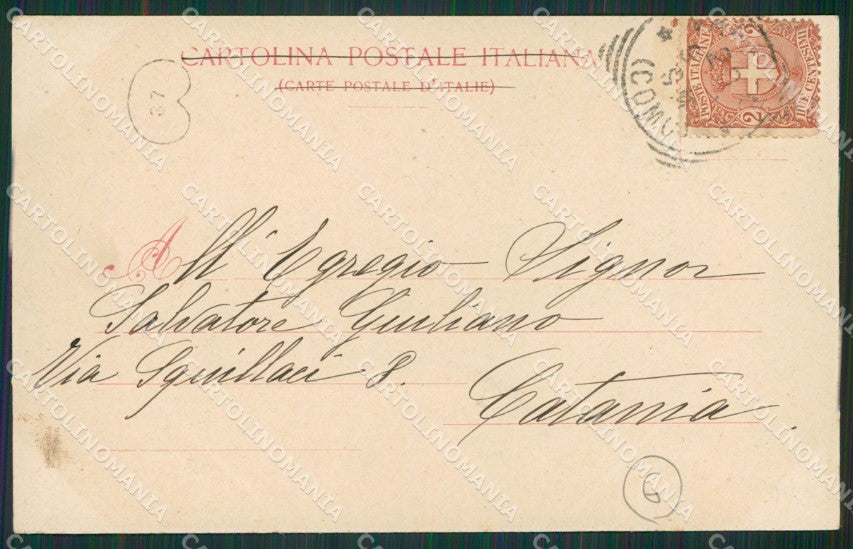 CARTOLINA POSTALE ITALIANA
(CARTE POSTALE D'ITALIE)
37
POSTE ITALIANE
DUE CENTESIMI
2
2
(COMO)
All' Egregio Signor
Salvatore Giuliano
Via Squillaci 8.
Catania.
6
CARTOLINOMANIA